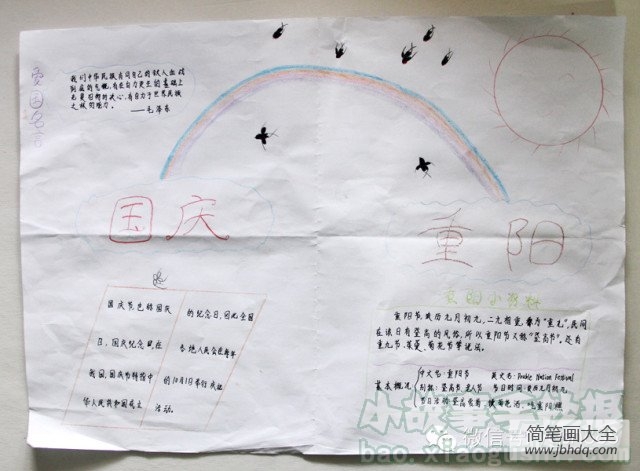 爱国名言
我们中华民族有同自己的敌人血战
到底的气概，有在自力更生的基础上
光复旧物的决心，有自立于世界民族
之林的能力。
——毛泽东
国庆
重阳
国庆节也称国庆
日、国庆纪念日，在
我国，国庆节特指中
华人民共和国成立
的纪念日，因此全国
各地人民会在每年
的10月1日举行庆祝
活动。
重阳节，农历九月初九，二九相重，称为“重九”，民间
在该日有登高的风俗，所以重阳节又称“登高节”。还有
重九节、茱萸、菊花节等说法。
基本概况
中文名：重阳节
英文名：Double Ninth Festival
别称：登高节、老人节
节日时间：农历九月初九
节日活动：登高赏菊、
吃重阳糕
微信
简笔画大全
www.jbhdq.com